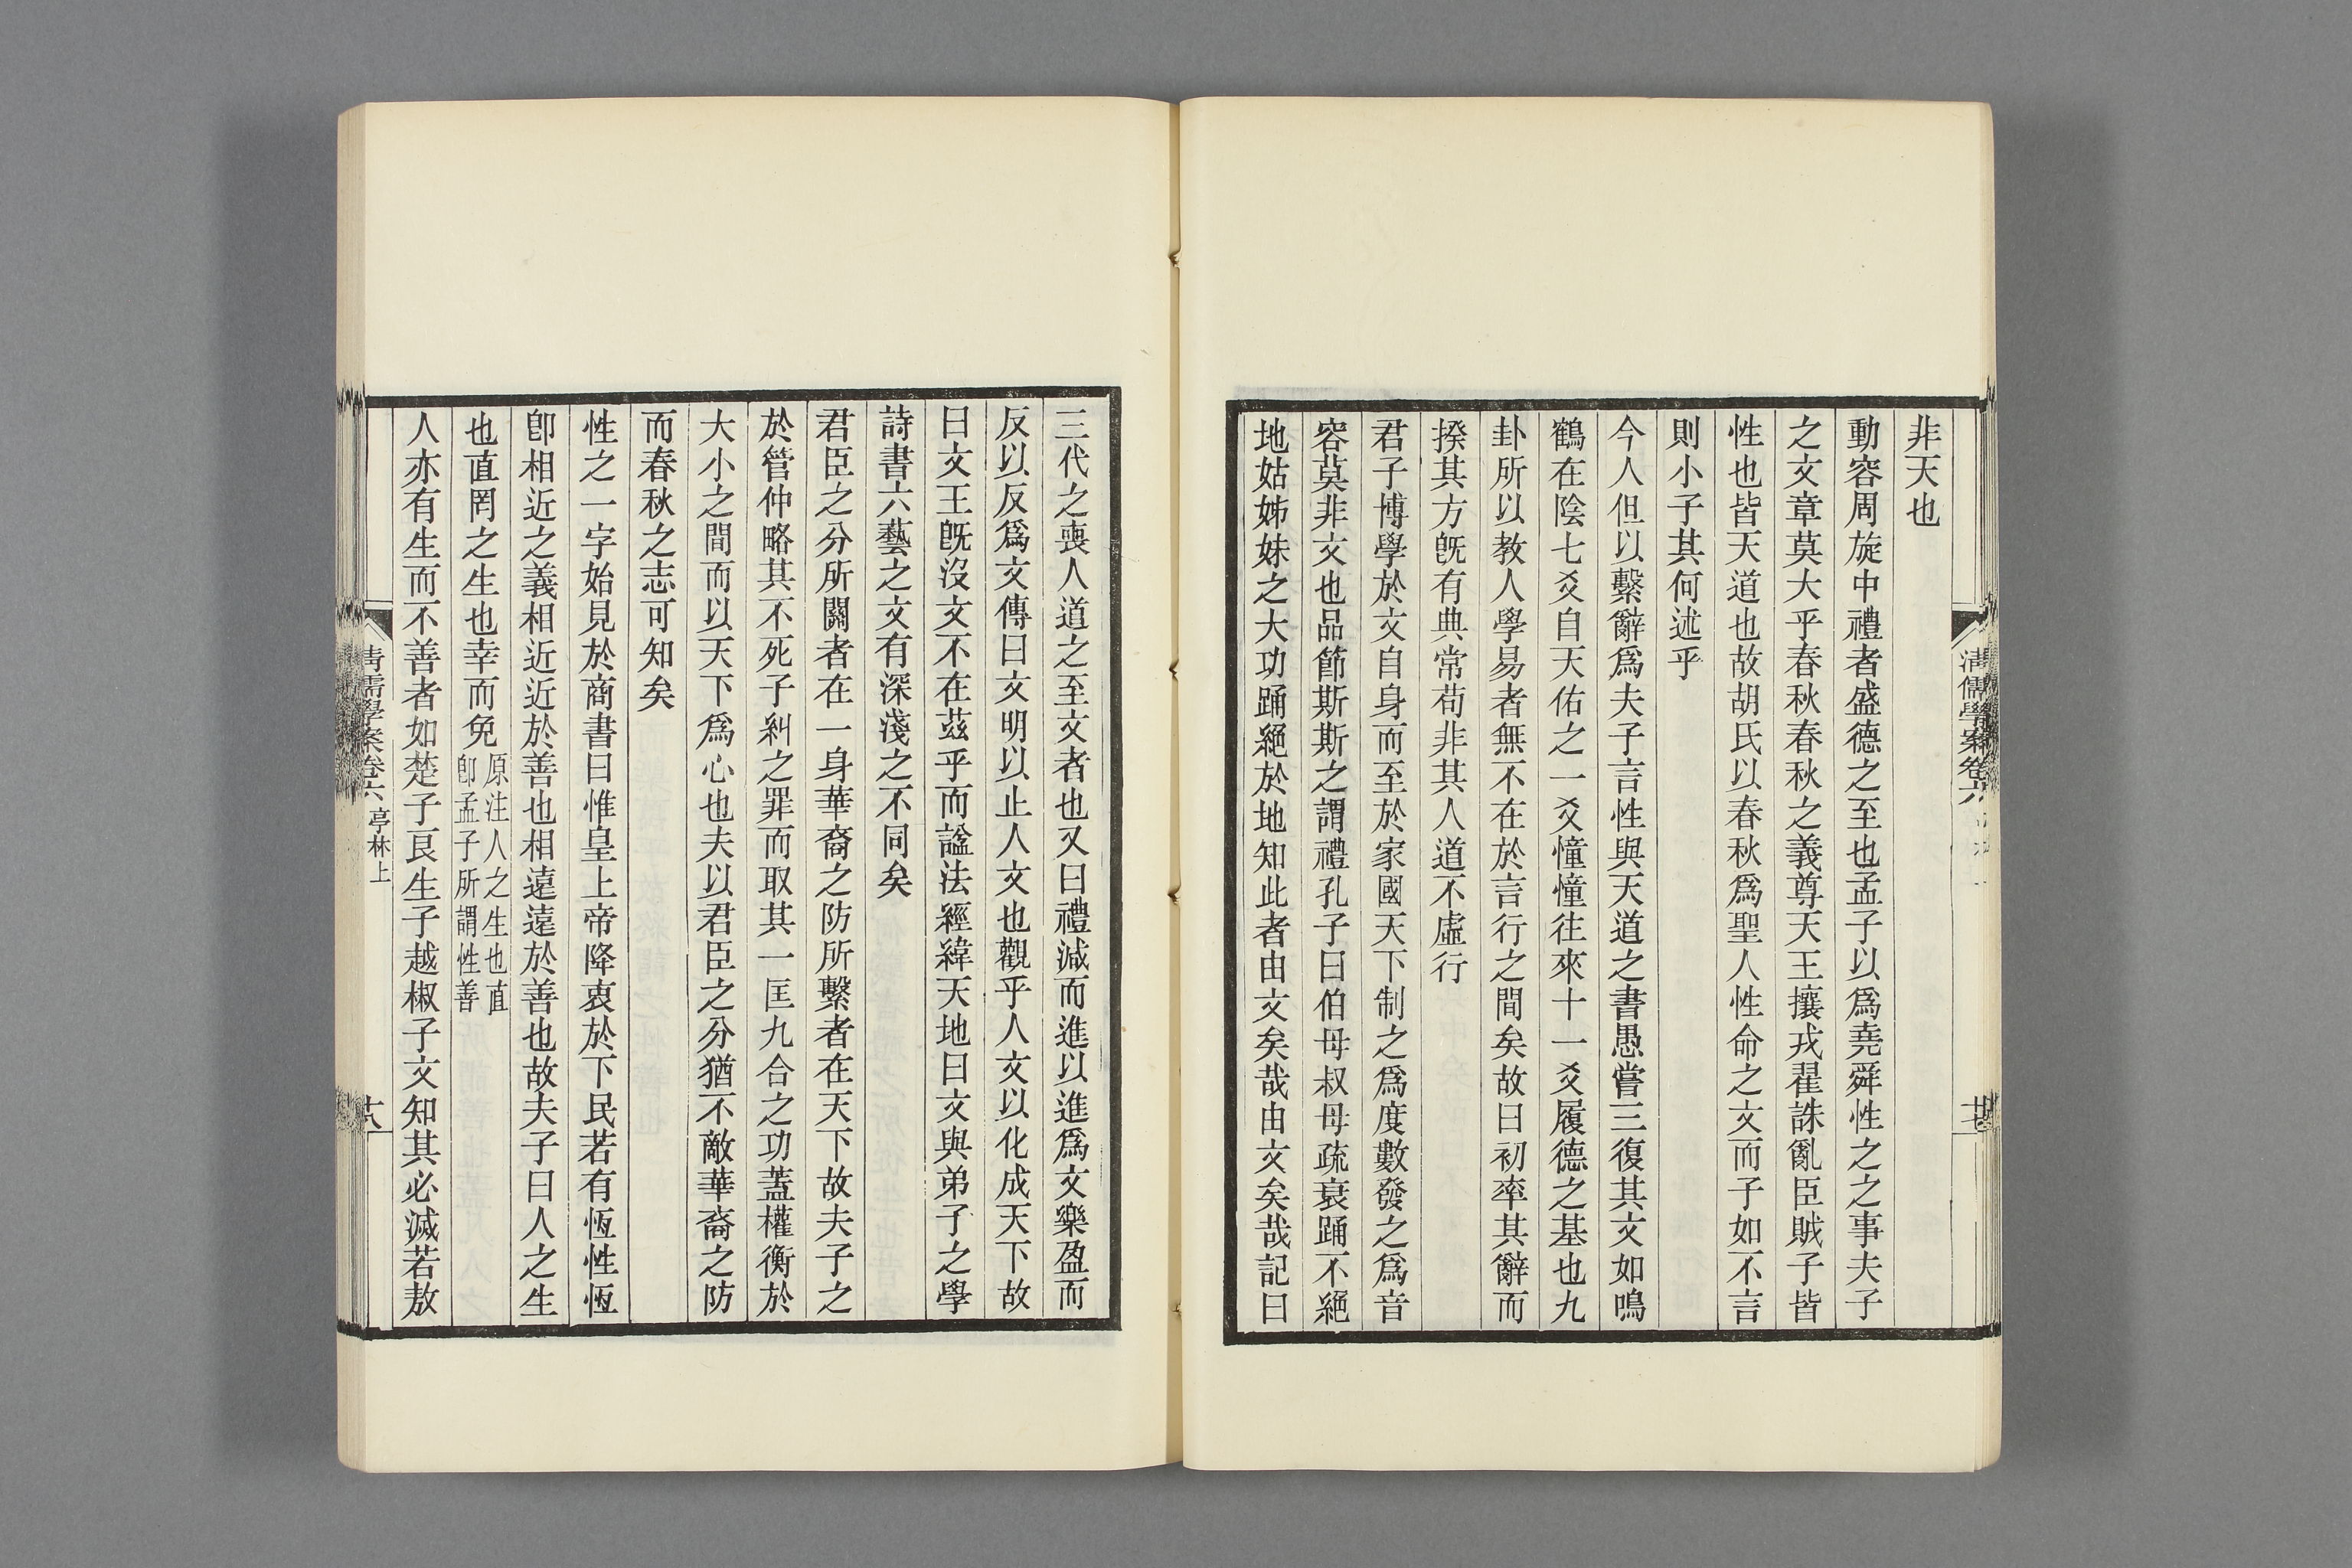 非天也
動容周旋中禮者盛德之至也孟子以爲堯舜性之之事夫子
之文章莫大乎春秋春秋之義尊天王攘戎翟誅亂臣賊子皆
性也皆天道也故胡氏以春秋爲聖人性命之文而子如不言
則小子其何述乎
今人但以繫辭爲夫子言性與天道之書愚嘗三復其文如鳴
鶴在陰七爻自天佑之一爻憧憧往來十一爻履德之基也九
卦所以教人學易者無不在於言行之間矣故曰初率其辭而
揆其方旣有典常苟非其人道不虛行
君子博學於文自身而至於家國天下制之爲度數發之爲音
容莫非文也品節斯斯之謂禮孔子曰伯母叔母疏衰踊不絕
地姑姊妹之大功踊絕於地知此者由文矣哉由文矣哉記曰
三代之喪人道之至文者也又曰禮減而進以進爲文樂盈而
反以反爲文傳曰文明以止人文也觀乎人文以化成天下故
曰文王旣沒文不在茲乎而謚法經緯天地曰文與弟子之學
詩書六藝之文有深淺之不同矣
君臣之分所關者在一身華裔之防所繫者在天下故夫子之
於管仲略其不死子糾之罪而取其一匡九合之功蓋權衡於
大小之間而以天下爲心也夫以君臣之分猶不敵華裔之防
而春秋之志可知矣
性之一字始見於商書曰惟皇上帝降衷於下民若有恆性恆
卽相近之義相近近於善也相遠遠於善也故夫子曰人之生
也直罔之生也幸而免
原注人之生也直
卽孟子所謂性善
人亦有生而不善者如楚子良生子越椒子文知其必滅若敖
清儒學案卷六 亭林上
十八
清儒學案卷六